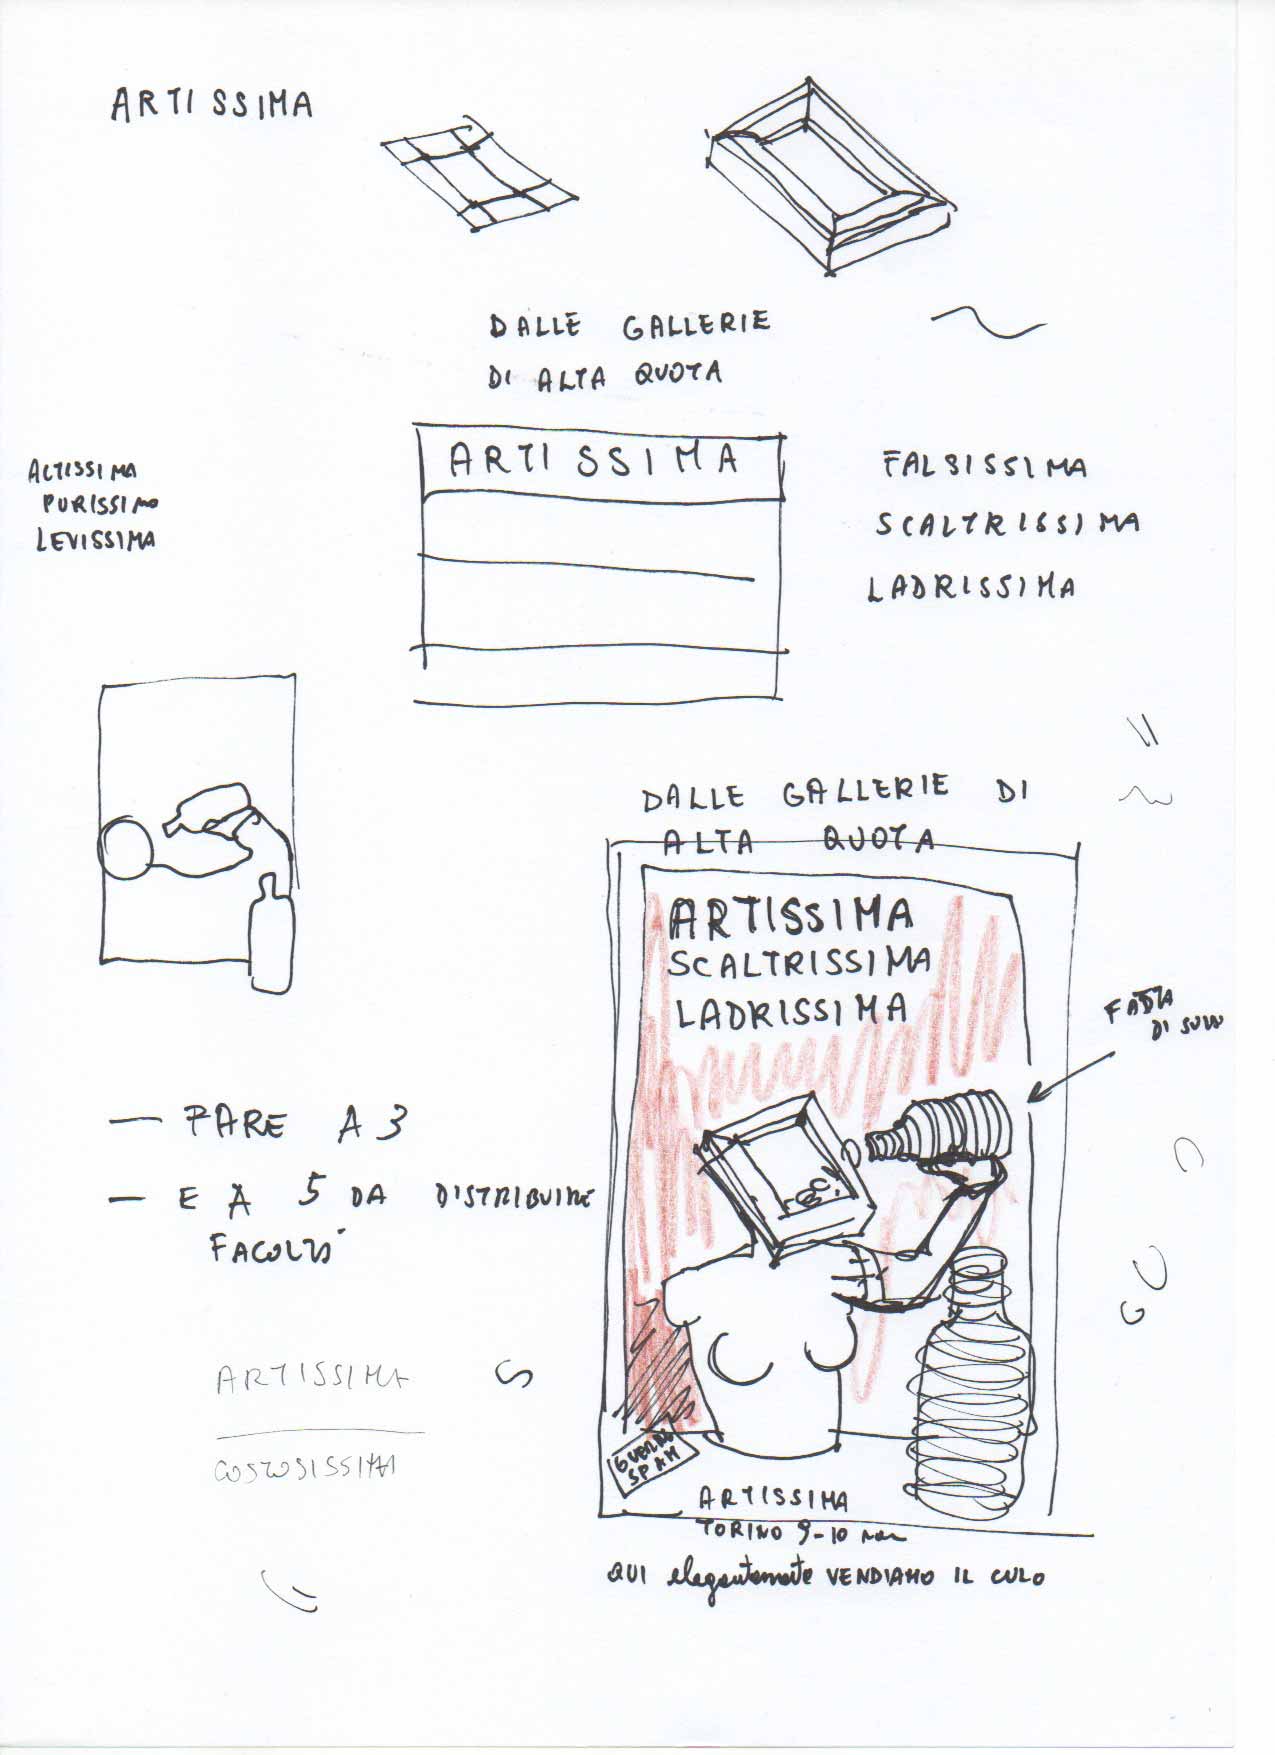 ARTISSIMA
DALLE GALLERIE
DI ALTA QUOTA
ARTISSIMA
ALTISSIMA
PURISSIMO
LEVISSIMA
FALSISSIMA
SCALTRISSIMA
LADRISSIMA
DALLE GALLERIE DI
ALTA QUOTA
ARTISSIMA
SCALTRISSIMA
LADRISSIMA
DI
— FARE A3
— E A 5 DA DISTRIBUIRE
ARTISSIMA
COSTOSISSIMA
GUERRILLA
SPAM
ARTISSIMA
TORINO 9-10 nov
QUI elegantemente VENDIAMO IL CULO